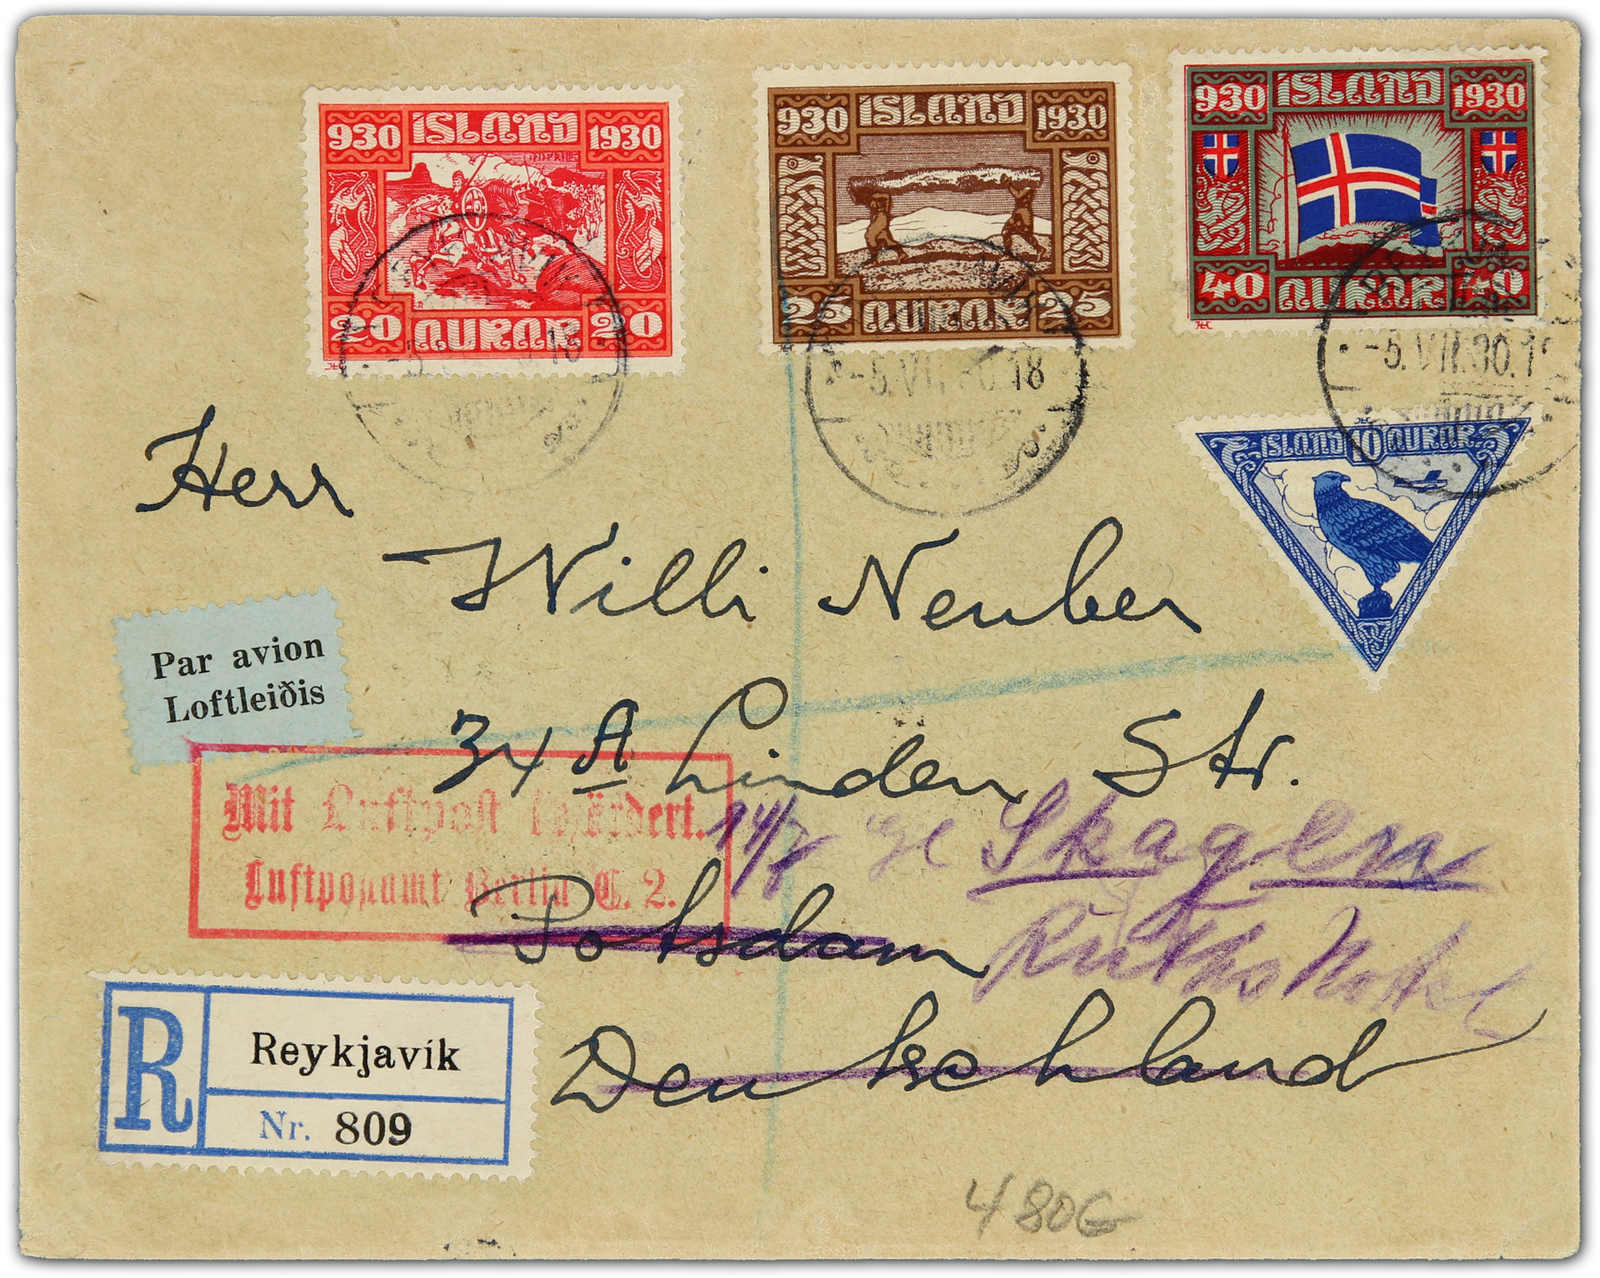 930 ÍSLAND 1930
20 AURAR 20
930 ÍSLAND 1930
25 AURAR 25
930 ÍSLAND 1930
40 AURAR 40
-5.VII.30.18
ISLAND 10 AURAR
Herr
Willi Neuber
Par avion
Loftleiðis
34 A Linden Str.
Mit Luftpost befördert.
Luftpostamt Berlin C. 2.
14/7 Skagen
Potsdam
Deutschland
R
Reykjavík
Nr. 809
480G